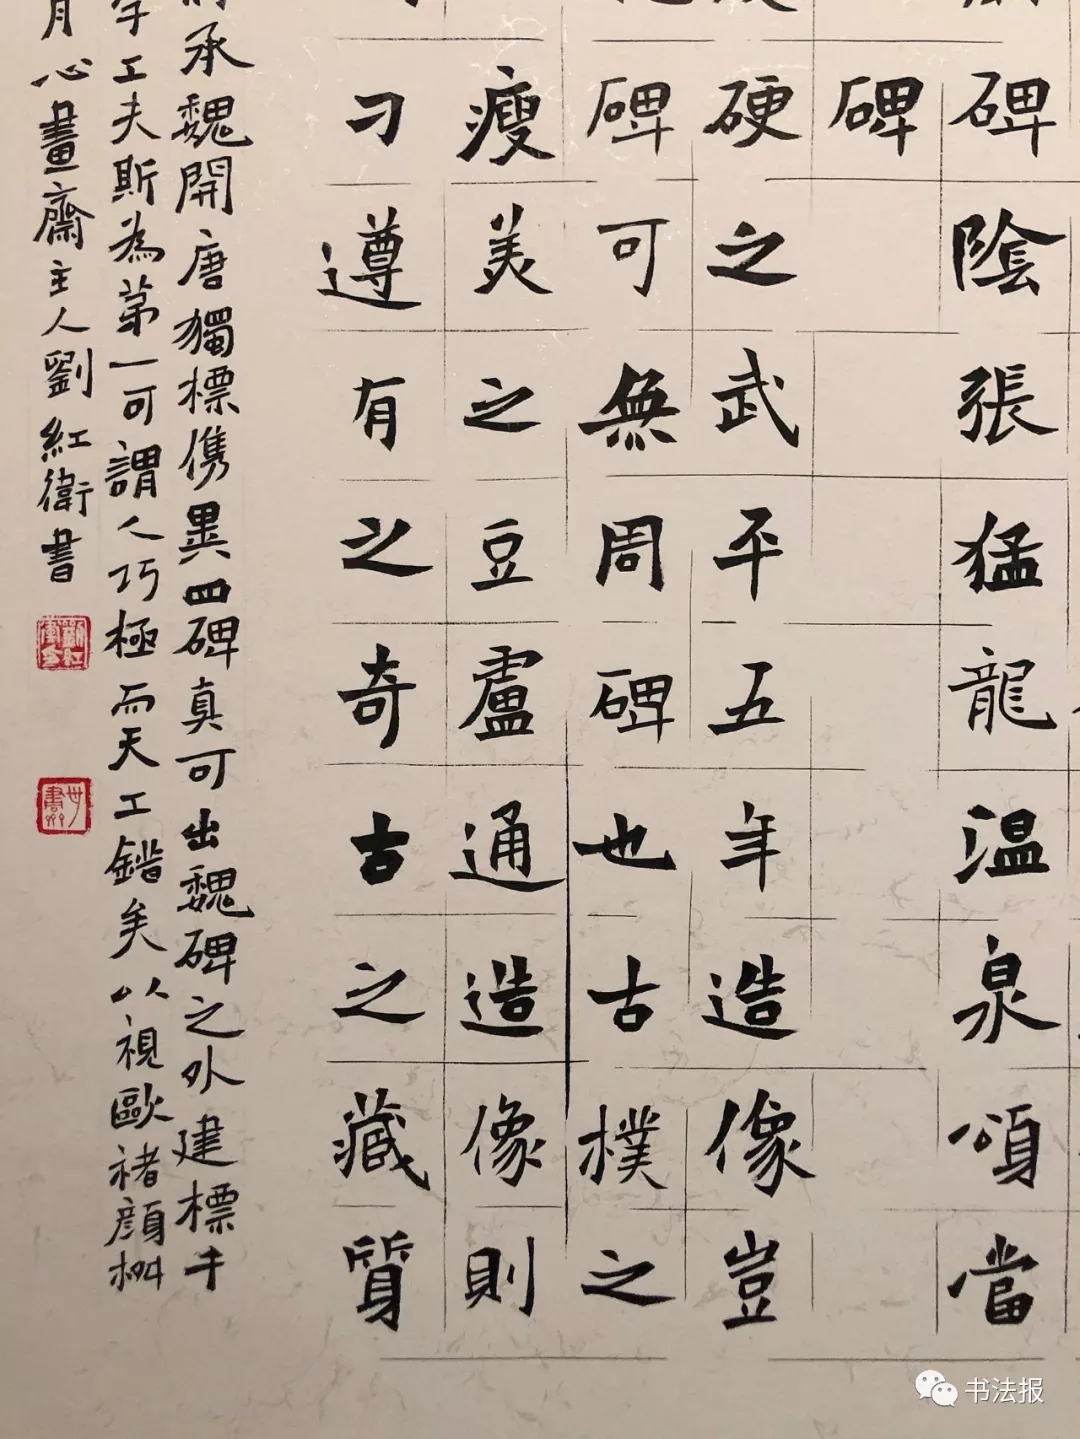 碑陰張猛龍溫泉頌當
碑
硬之武平五年造像豈
碑可無周碑也古樸之
瘦美之豆盧通造像則
刁遵有之奇古之藏質
承魏開唐獨標儁異四碑真可出魏碑之外建標千
工夫斯為第一可謂人巧極而天工錯矣以視歐褚顏柳
月心畫齋主人劉紅衛書
书法报